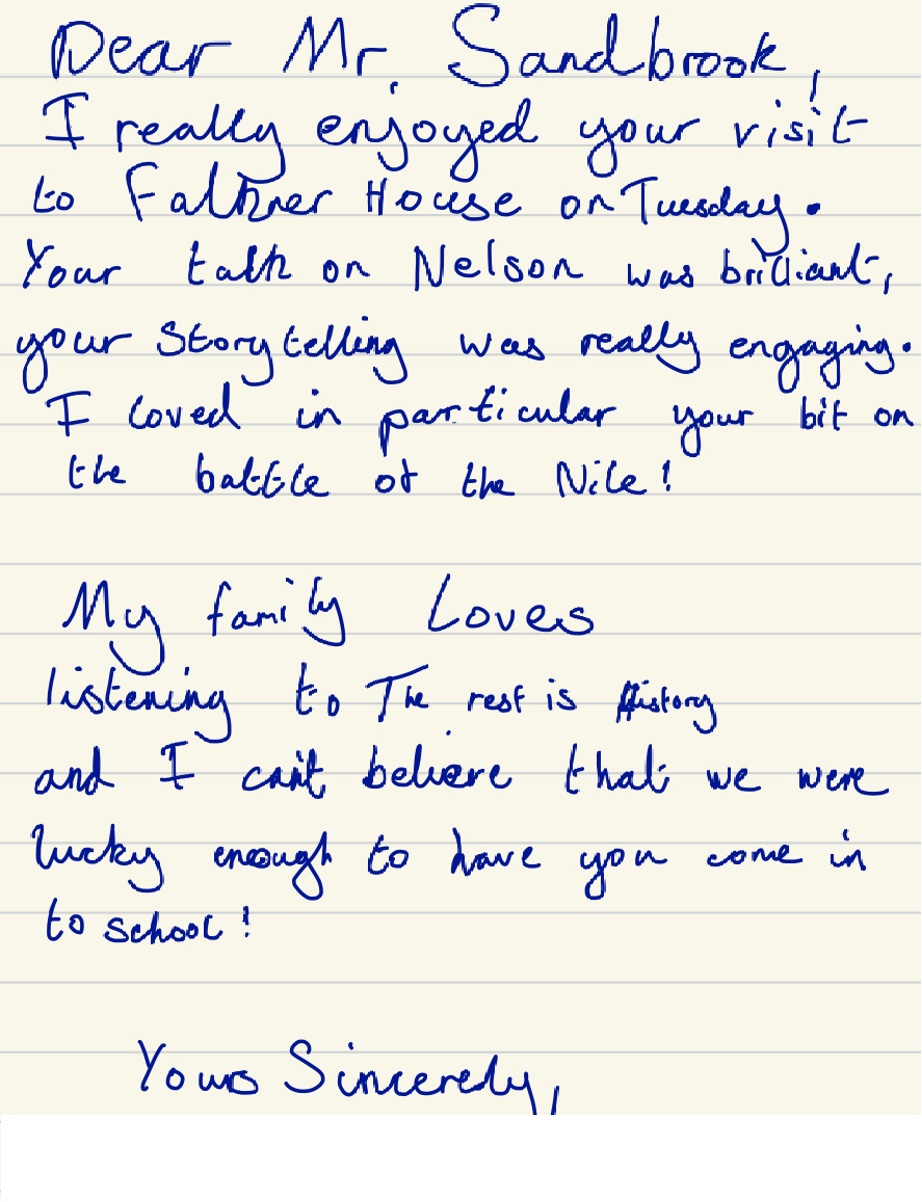 Dear Mr. Sandbrook,
I really enjoyed your visit
to Falkner House on Tuesday.
Your talk on Nelson was brilliant,
your storytelling was really engaging.
I loved in particular your bit on
the battle of the Nile!
My family Loves
listening to The rest is History
and I can't believe that we were
lucky enough to have you come in
to school!
Yours Sincerely,